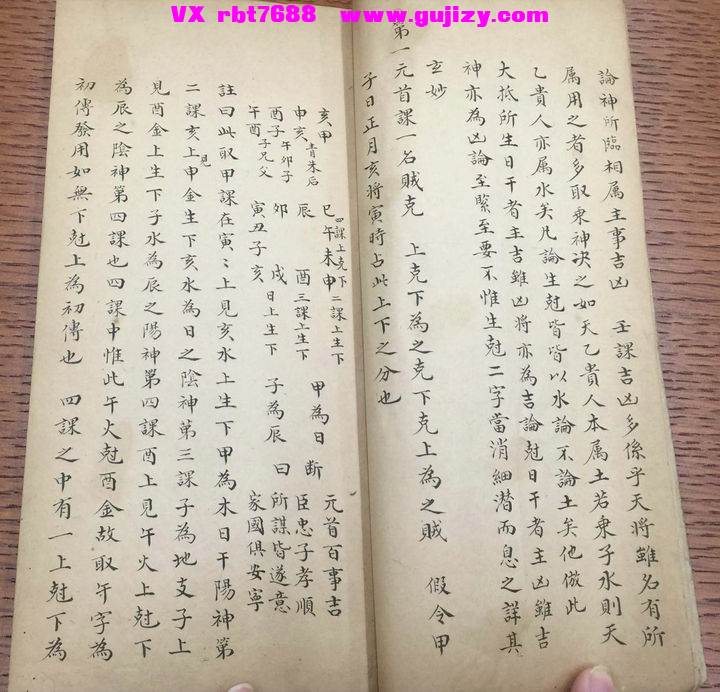 VX rbt7688 www.gujizy.com
論神所臨相属主事吉凶 壬課吉凶多係乎天將雖名有所
属用之者多取乗神决之如天乙貴人本属土若乗子水則天
乙貴人亦属水矣凡論生尅皆皆以水論不論土矣他倣此
大抵所生日干者主吉雖凶將亦為吉論尅日干者主凶雖吉
神亦為凶論至緊至要不惟生尅二字當消細潜而息之詳其
玄妙
第一元首課一名賊克 上克下為之克下克上為之賊 假令甲
子日正月亥將寅時占此上下之分也
亥甲 巳午未申 四課上克下二課上生下 甲為日断 元首百事吉
申亥 青朱后 辰 酉 三課上生下 臣忠子孝順
酉子 午卯子 卯 戌 日上生下 子為辰曰 所謀皆遂意
午酉 子兄父 寅丑子亥 家國俱安寧
註曰此取甲課在寅〻上見亥水上生下甲為木日干陽神第
二課亥上見申金生下亥水為日之陰神第三課子為地支子上
見酉金上生下子水為辰之陽神第四課酉上見午火上尅下
為辰之陰神第四課也四課中惟此午火尅酉金故取午字為
初傳發用如無下尅上為初傳也 四課之中有一上尅下為